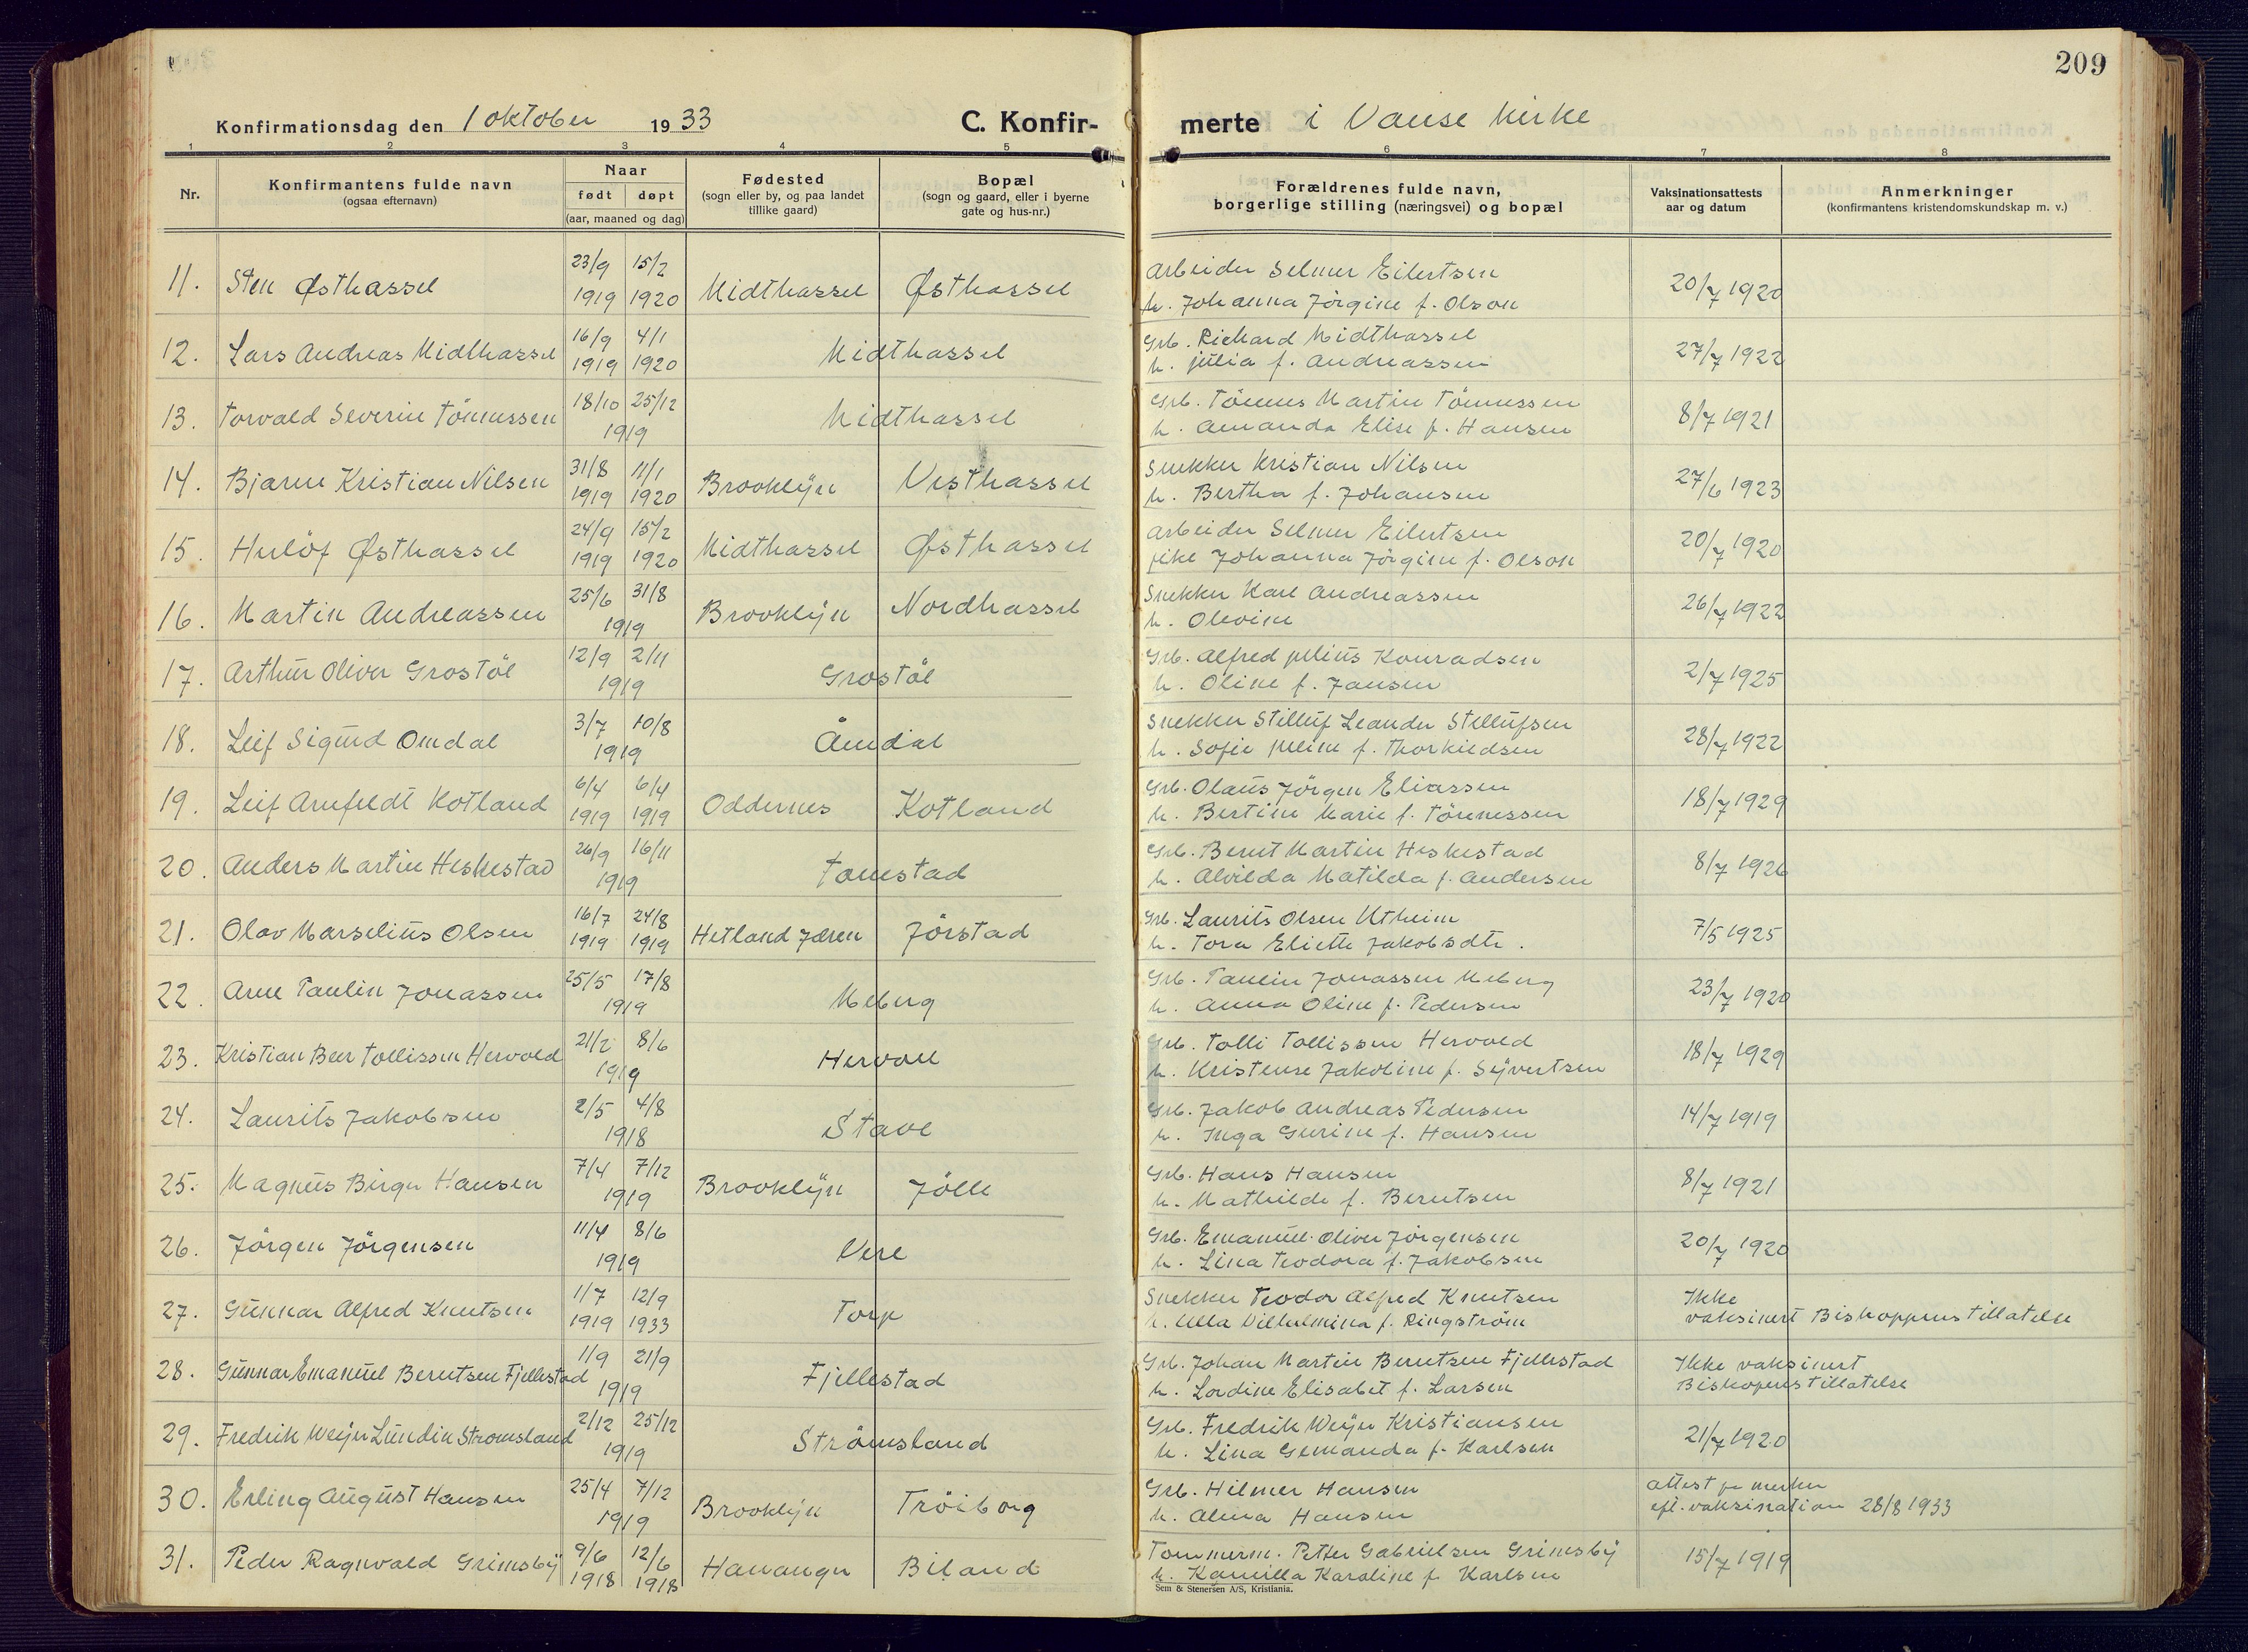 209
Konfirmationsdag den 1 oktober 1933 C. Konfir- merte i Vanse kirke
1 2 3 4 5 6 7 8
Nr.
Konfirmantens fulde navn
(ogsaa efternavn)
Naar
født døpt
(aar, maaned og dag)
Fødested
(sogn eller by, og paa landet
tillike gaard)
Bopæl
(sogn og gaard, eller i byerne
gate og hus-nr.)
Forældrenes fulde navn,
borgerlige stilling (næringsvei) og bopæl
Vaksinationsattests
aar og datum
Anmerkninger
(konfirmantens kristendomskundskap m. v.)
11. Sten Østhassel 23/9 1919 15/2 1920 Midthassel Østhassel Arbeider Selmer Eilertsen 20/7 1920
h. Johanna Jörgine f. Olson
12. Lars Andreas Midthassel 16/9 1919 4/1 1920 Midthassel Grb. Richard Midthassel 27/7 1922
h. Julia f. Andreassen
13. Torvald Severin Tönnessen 18/10 25/12 1919 Midthassel Grb. Tönnes Martin Tönnessen 8/7 1921
h. Amanda Elise f. Hansen
14. Bjarne Kristian Nilsen 31/8 1919 11/1 1920 Brooklyn Vesthassel Snekker Kristian Nilsen 27/6 1923
h. Bertha f. Johansen
15. Herlöf Østhassel 24/9 1919 15/2 1920 Midthassel Østhassel Arbeider Selmer Eilertsen 20/7 1920
Johanna Jörgine f. Olson
16. Martin Andreassen 25/6 31/8 1919 Brooklyn Nordhassel Snekker Karl Andreassen 26/7 1922
h. Olevine
17. Arthur Oliver Grostöl 12/9 2/11 1919 Grostöl Grb. Alfred Julius Konradsen 2/7 1925
h. Oline f. Jansen
18. Leif Sigurd Omdal 3/7 10/8 1919 Åmdal Snekker Stilluf Leander Stellufsen 28/7 1922
h. Sofie Juline f. Thorkildsen
19. Leif Arnfeldt Kotland 6/4 1919 6/4 1919 Oddernes Kotland Grb. Olaus Jörgen Eliassen 18/7 1929
h. Bertine Marie f. Tönnessen
20. Anders Martin Heskestad 26/9 16/11 1919 Tomestad Grb. Bernt Martin Heskestad 8/7 1926
h. Alvilda Matilda f. Andersen
21. Olav Marselius Olsen 16/7 1919 24/8 1919 Hetland Jæren Jörstad Grb. Laurits Olsen Utheim 7/5 1925
h. Tora Eliette Jakobsdtr.
22. Arne Paulin Jonassen 25/5 17/8 1919 Meberg Grb. Paulin Jonassen Meberg 23/7 1920
h. Anna Oline f. Pedersen
23. Kristian Beer Tollissen Hervold 21/2 8/6 1919 Hervoll Grb. Tolli Tollissen Hervold 18/7 1929
h. Kristense Jakoline f. Syvertsen
24. Laurits Jakobsen 2/5 4/8 1918 Stave Grb. Jakob Andreas Pedersen 14/7 1919
h. Inga Gurine f. Hansen
25. Magnus Birger Hansen 7/4 7/12 1919 Brooklyn Jölle Grb. Hans Hansen 8/7 1921
h. Mathilde f. Berntsen
26. Jörgen Jörgensen 11/4 8/6 1919 Vere Grb. Emanuel Oliver Jörgensen 20/7 1920
h. Lina Teodora f. Jakobsen
27. Gunnar Alfred Knutsen 1/7 1919 12/9 1933 Torp Snekker Teodor Alfred Knutsen Ikke
h. Ulla Vilhelmina f. Ringström vaksinert Biskoppens tillatelse
28. Gunnar Emanuel Berntsen Fjellestad 1/9 21/9 1919 Fjellestad Grb. Johan Martin Berntsen Fjellestad Ikke vaksinert
h. Lovdine Elisabet f. Larsen Biskopens tillatelse
29. Fredrik Weyer Lundin Stromsland 2/12 25/12 1919 Strömsland Grb. Fredrik Weyer Kristiansen 21/7 1920
h. Lina Gemanda f. Karlsen
30. Erling August Hansen 25/4 7/12 1919 Brooklyn Tröiborg Grb. Hilmer Hansen attest
h. Alma Hansen vaksination 28/8 1933
31. Peder Ragnvald Grimsby 9/6 1918 12/6 1918 Hanangr Biland Tommerm. Petter Gabrielsen Grimsby 15/7 1919
h. Kamilla Karoline f. Karlsen
Sem & Stenersen A/S, Kristiania.